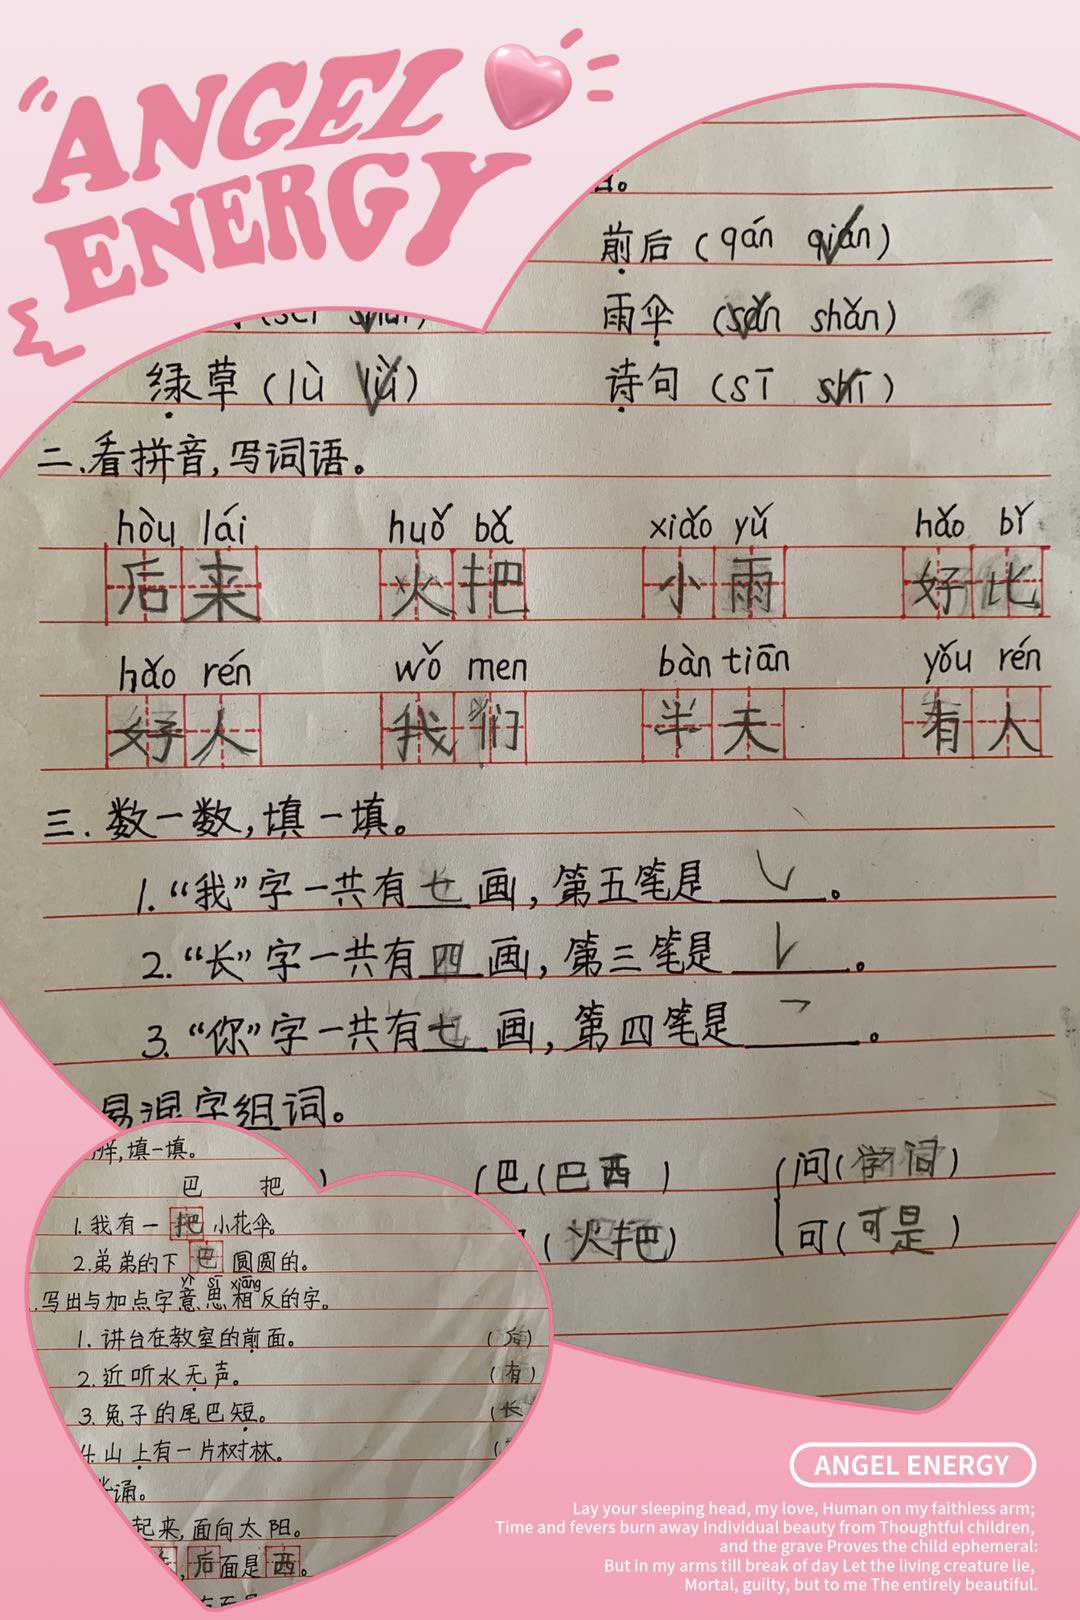 ANGEL
ENERGY
前后（qán qián）
雨伞（sǎn shǎn）
绿草（lù lǜ）
诗句（sī shī）
二、看拼音,写词语。
hòu lái huǒ bǎ xiǎo yǔ hǎo bǐ
后来 火把 小雨 好比
hǎo rén wǒ men bàn tiān yǒu rén
好人 我们 半天 有人
三、数一数,填一填。
1.“我”字一共有七画,第五笔是㇂。
2.“长”字一共有四画,第三笔是𠄌。
3.“你”字一共有七画,第四笔是乛。
易混字组词。
巴（巴西） 问（学问）
（火把） 可（可是）
填一填。
巴 把
1.我有一把小花伞。
2.弟弟的下巴圆圆的。
yì sī xiāng
写出与加点字意思相反的字。
1.讲台在教室的前面。（后）
2.近听水无声。（有）
3.兔子的尾巴短。（长
4.山上有一片树林。（
诵。
起来,面向太阳。
,后面是西。
ANGEL ENERGY
Lay your sleeping head, my love, Human on my faithless arm;
Time and fevers burn away Individual beauty from Thoughtful children,
and the grave Proves the child ephemeral:
But in my arms till break of day Let the living creature lie,
Mortal, guilty, but to me The entirely beautiful.